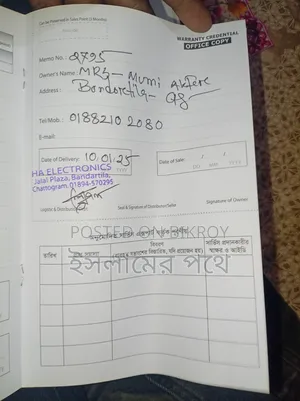 Can be Presented to Sales Point (3 Months)
WARRANTY CREDENTIAL
OFFICE COPY
Memo No. : 2795
Owner's Name : MRS- Mumi Aktere
Address : Bandortila-
Tel/Mob. : 0188210 2080
E-mail:
Date of Delivery: 10.01.25
Date of Sale: / /
H.A ELECTRONICS
Jalal Plaza, Bandartila,
Chattogram. 01894-570295
Seal & Signature of Distributor/Seller
Signature of Owner
POSTED ON BIKROY
ইসলামের পথে
তারিখ
বিবরণ
সার্ভিস প্রদানকারীর
স্বাক্ষর ও আইডি